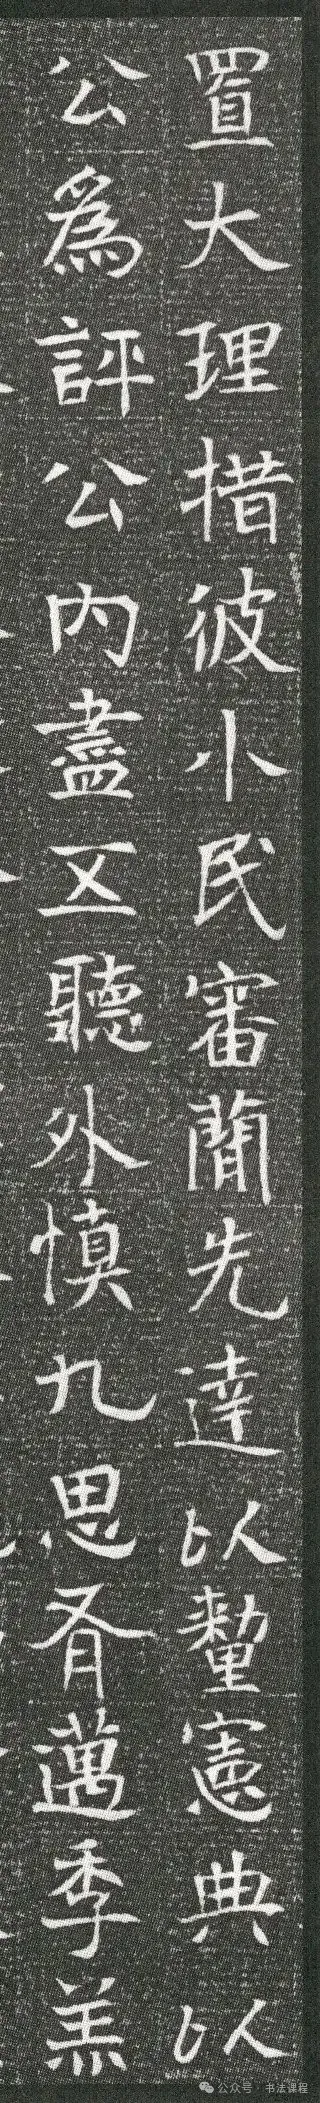 置大理措彼小民審蕳先達以整憲典以
公爲評公内盡五聽外慎九思有邁季羔
公众号·书法课程